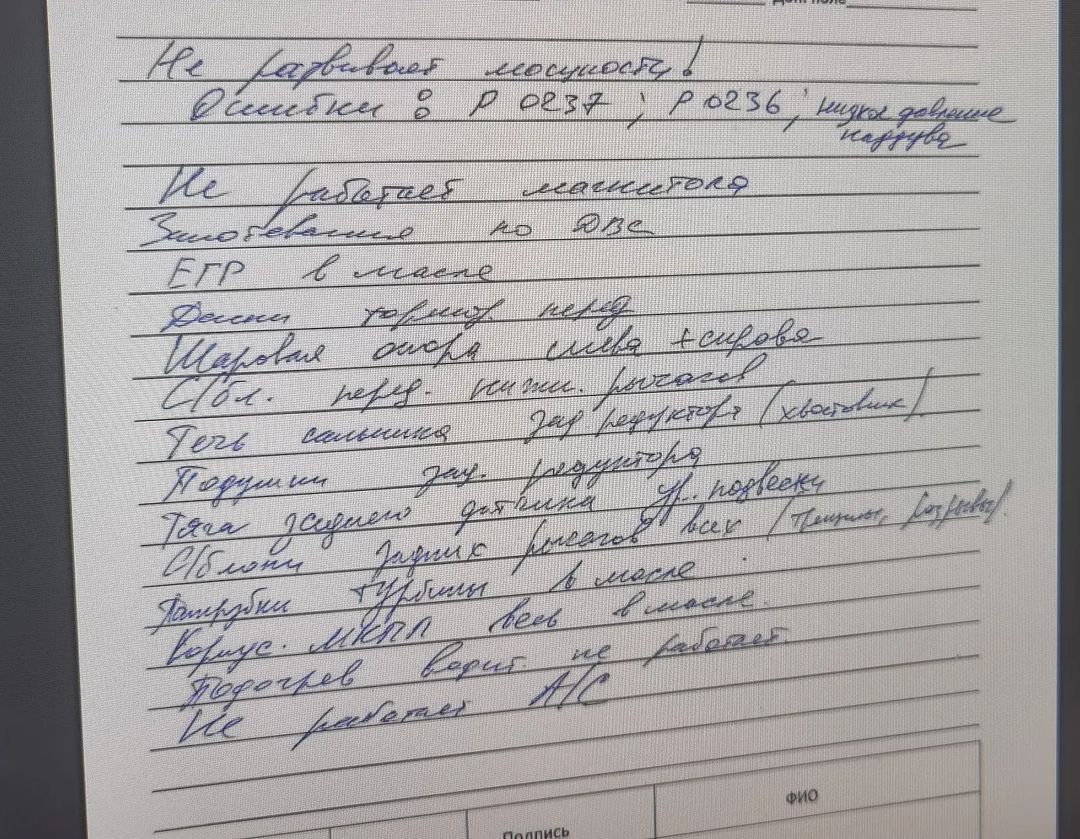 Не развивает мощность!
Ошибки: P 0237; P 0236, низкое давление
наддува
Не работает магнитола
Запотевания по ДВС
ЕГР в масле
Диски тормоз. перед
Шаровая опора слева + справа
С/бл. перед. нижн. рычагов
Течь сальника зад редуктора (хвостовик)
Подушки зад. редуктора
Тяга заднего датчика ур. подвески
С/блоки задних рычагов всех (трещины, разрывы).
Патрубки турбины в масле
Корпус. МКПП весь в масле.
Подогрев водит. не работает.
Не работает A/C
ФИО
Подпись